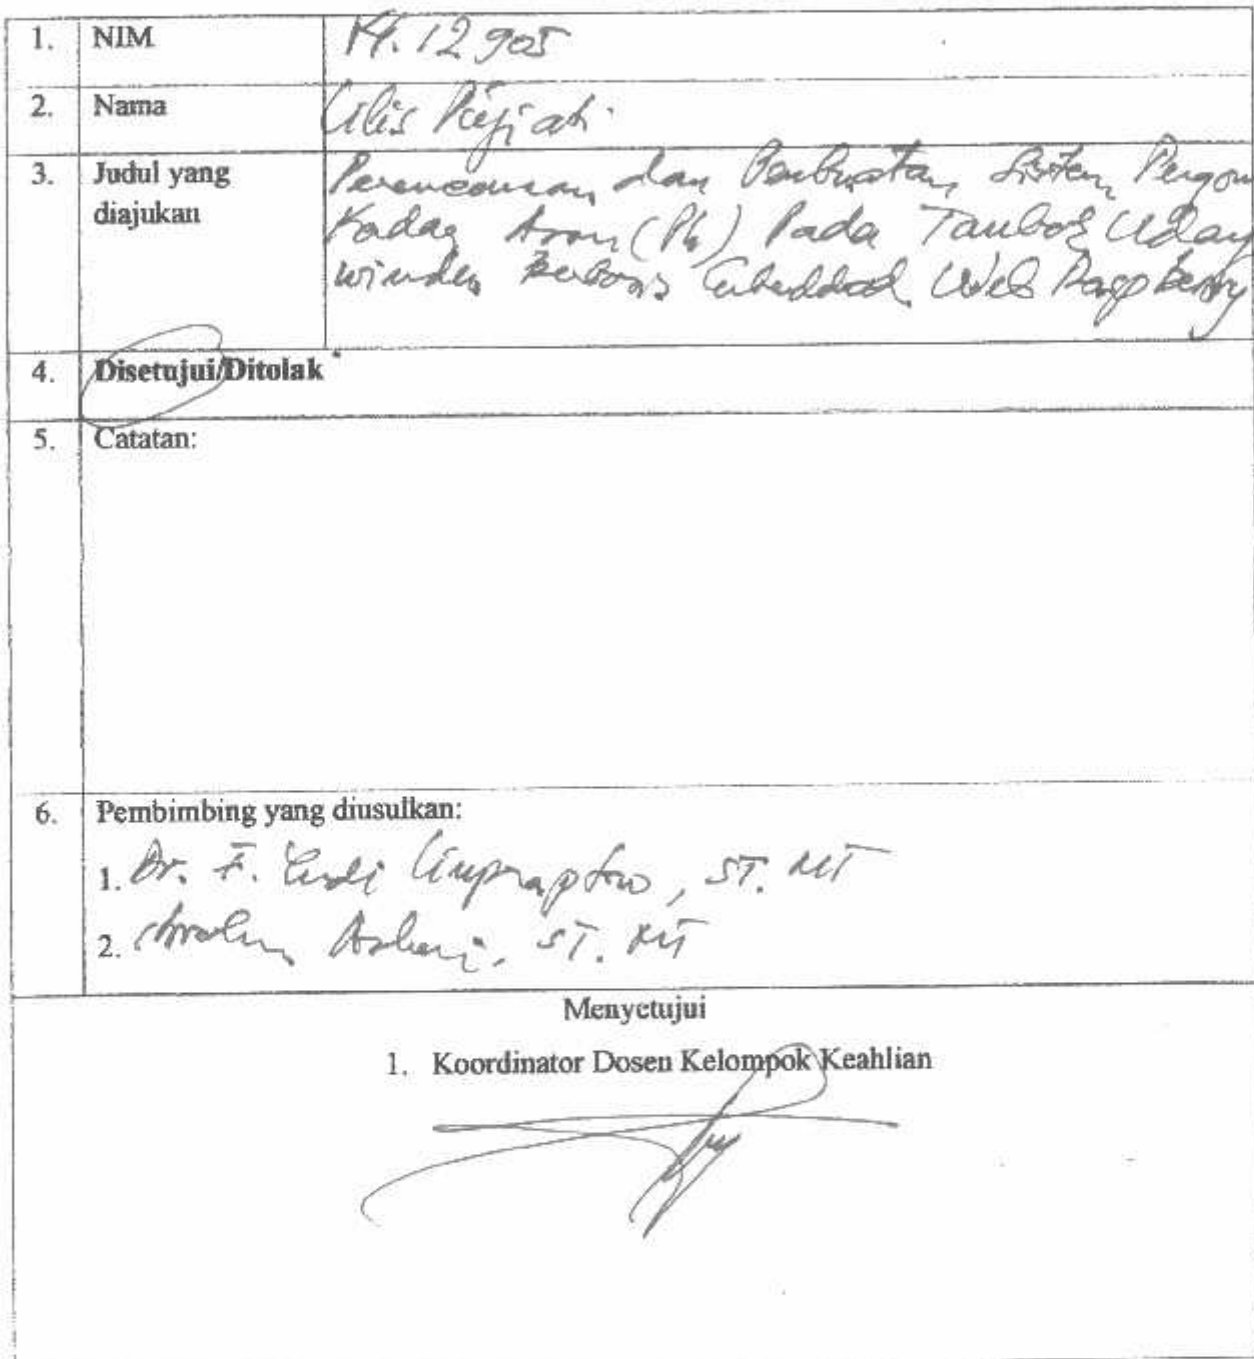 1. NIM 14.12 905
2. Nama
3. Judul yang diajukan
dan Pembuatan Sistem
Kadar Asam (Ph) Pada Tambak Udang
windu Berbasis Embedded Web Raspberry
4. Disetujui/Ditolak *
5. Catatan:
6. Pembimbing yang diusulkan:
1. Dr. F. Yudi Limpraptono, ST. MT
2. Ashari, ST. MT
Menyetujui
1. Koordinator Dosen Kelompok Keahlian